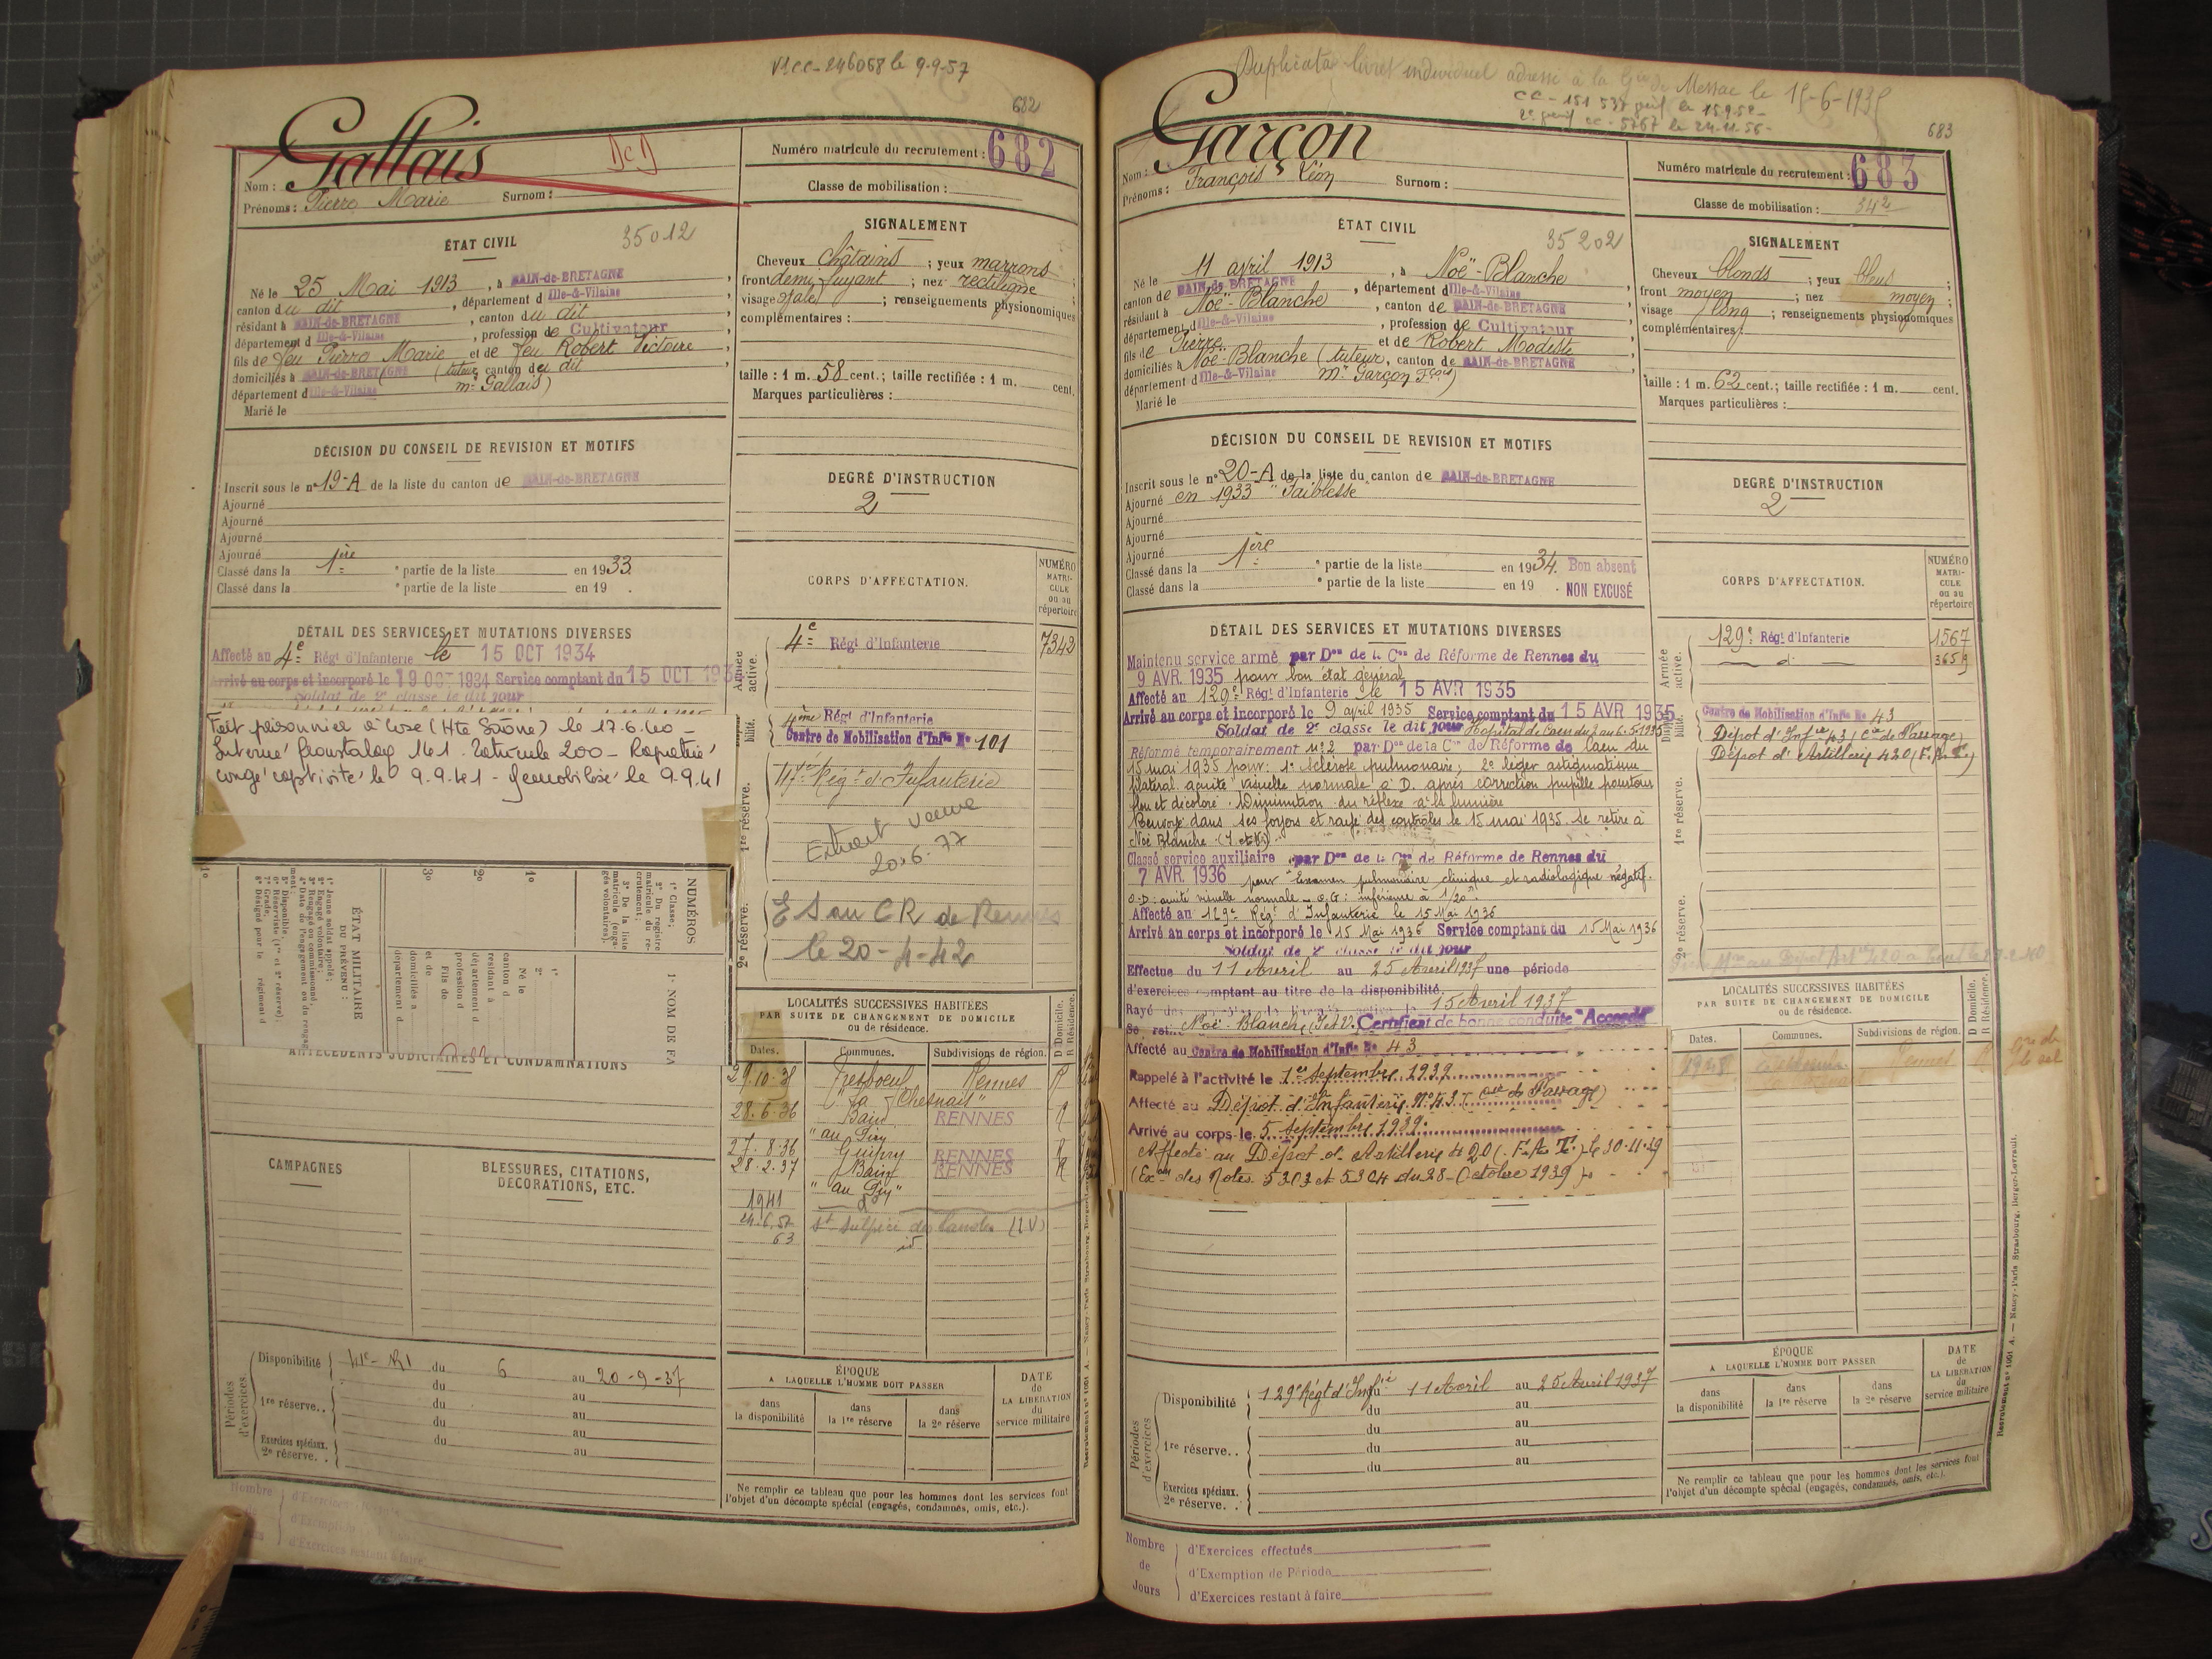 V. CC - 246068 le 9-9-57
682
Gallais
DCD
Nom :
Prénoms : Pierre Marie Surnom :
Numéro matricule du recrutement : 682
Classe de mobilisation :
ÉTAT CIVIL
35012
Né le 25 Mai 1913, à BAIN-de-BRETAGNE,
canton du dit, département d Ille-&-Vilaine
résidant à BAIN-de-BRETAGNE, canton du dit
département d Ille-&-Vilaine, profession de Cultivateur
fils de feu Pierre Marie et de feu Robert Victoire,
domiciliés à BAIN-de-BRETAGNE (tuteur, canton du dit
département d Ille-&-Vilaine mr Gallais)
Marié le
SIGNALEMENT
Cheveux châtains ; yeux marrons
front demi fuyant ; nez rectiligne ;
visage ovale ; renseignements physionomiques
complémentaires :
taille : 1 m. 58 cent. ; taille rectifiée : 1 m. cent.
Marques particulières :
DÉCISION DU CONSEIL DE REVISION ET MOTIFS
Inscrit sous le n° 19-A de la liste du canton de BAIN-de-BRETAGNE
Ajourné
Ajourné
Ajourné
Ajourné
Classé dans la 1ère partie de la liste en 1933.
Classé dans la partie de la liste en 19 .
DEGRÉ D'INSTRUCTION
2
CORPS D'AFFECTATION.
NUMÉRO MATRICULE ou au répertoire
DÉTAIL DES SERVICES ET MUTATIONS DIVERSES
Affecté au 4e Régt d'Infanterie le 15 OCT 1934
Arrivé au corps et incorporé le 19 OCT 1934 Service comptant du 15 OCT 193
Soldat de 2e classe le dit jour
Fait prisonnier à Lure (Hte Saône) le 17.6.40 -
Interné frontstalag 141. Matricule 200 - Rapatrié
congé captivité le 9.9.41 - Démobilisé le 9.9.41
Armée active.
4e Régt d'Infanterie 7342
4ème Régt d'Infanterie
Centre de Mobilisation d'Infie N° 101
1re réserve.
Régt d'Infanterie
Extrait Veuve
20.6.77
2e réserve.
ES au CR de Rennes
le 20-4-42
NUMÉROS
1° Classe ;
2° Du registre matricule du recrutement ;
3° De la liste matricule (engagés volontaires).
1° NOM DE FA
ÉTAT MILITAIRE
DU PRÉVENU :
1° Jeune soldat appelé ;
2° Engagé volontaire ;
3° Rengagé ou commissionné ;
4° Date de l'engagement ou du rengagement ;
5° Disponible ;
6° Réserviste (1re et 2e réserve) ;
7° Grade ;
8° Désigné pour le régiment d
Né le
canton d
résidant à
département d
profession d
Fils de
et de
domiciliés à
département d
ANTÉCÉDENTS JUDICIAIRES ET CONDAMNATIONS
LOCALITÉS SUCCESSIVES HABITÉES
PAR SUITE DE CHANGEMENT DE DOMICILE
ou de résidence.
Dates. Communes. Subdivisions de région. D Domicile. R Résidence.
29.10.35 Tresboeuf Rennes R
"La Chesnais"
28.6.36 Bain RENNES R
"au Piry"
27.8.36 Guipry RENNES R
28.2.37 Bain RENNES R
"au Piry"
1941 d°
24.6.57 St Sulpice des Landes (I.V)
63 id
CAMPAGNES
BLESSURES, CITATIONS,
DÉCORATIONS, ETC.
Périodes d'exercices.
Disponibilité 41e RI du 6 au 20-9-37
du au
1re réserve. . du au
du au
Exercices spéciaux. du au
2e réserve. . au
ÉPOQUE
A LAQUELLE L'HOMME DOIT PASSER
dans la disponibilité
dans la 1re réserve
dans la 2e réserve
DATE de LA LIBÉRATION du service militaire
Ne remplir ce tableau que pour les hommes dont les services font
l'objet d'un décompte spécial (engagés, condamnés, omis, etc.).
Nombre d'Exercices effectués
de d'Exemption de Période
Jours d'Exercices restant à faire
Duplicata livret individuel adressé à la Gie de Messac le 15-6-1935
CC - 151 537 le 15.9.52 -
CC - 5767 le 24-11-56 -
683
Garçon
Nom :
Prénoms : François Léon Surnom :
Numéro matricule du recrutement : 683
Classe de mobilisation : 34 2
ÉTAT CIVIL
35202
Né le 11 avril 1913, à Noë-Blanche
canton de BAIN-de-BRETAGNE, département d Ille-&-Vilaine
résidant à Noë-Blanche, canton de BAIN-de-BRETAGNE
département d Ille-&-Vilaine, profession de Cultivateur
fils de Pierre et de Robert Modeste,
domiciliés à Noë-Blanche (tuteur, canton de BAIN-de-BRETAGNE
département d Ille-&-Vilaine mr Garçon Fçois)
Marié le
SIGNALEMENT
Cheveux blonds ; yeux bleus ;
front moyen ; nez moyen ;
visage long ; renseignements physionomiques
complémentaires :
taille : 1 m. 62 cent. ; taille rectifiée : 1 m. cent.
Marques particulières :
DÉCISION DU CONSEIL DE REVISION ET MOTIFS
Inscrit sous le n° 20-A de la liste du canton de BAIN-de-BRETAGNE
Ajourné en 1933 "Faiblesse"
Ajourné
Ajourné
Ajourné
Classé dans la 1ère partie de la liste en 1934. Bon absent
Classé dans la partie de la liste en 19 . NON EXCUSÉ
DEGRÉ D'INSTRUCTION
2
CORPS D'AFFECTATION.
NUMÉRO MATRICULE ou au répertoire
DÉTAIL DES SERVICES ET MUTATIONS DIVERSES
Maintenu service armé par Don de la Con de Réforme de Rennes du
9 AVR. 1935 pour bon état général
Affecté au 129e Régt d'Infanterie le 15 AVR 1935
Arrivé au corps et incorporé le 9 avril 1935 Service comptant du 15 AVR 1935
Soldat de 2e classe le dit jour Hopital de Caen du 2 au 6-5-1935
Réformé temporairement n°2 par Don de la Con de Réforme de Caen du
15 mai 1935 pour : 1° Sclérose pulmonaire ; 2° léger astigmatisme
bilatéral acuité visuelle normale à D. après correction pupille
flou et décoloré. Diminution du réflexe à la lumière
Renvoyé dans ses foyers et rayé des contrôles le 15 mai 1935. Se retire à
Noë Blanche (I et V).
Classé service auxiliaire par Don de la Con de Réforme de Rennes du
7 AVR. 1936 pour "Examen pulmonaire clinique et radiologique négatif.
O.D : acuité visuelle normale - O.G : inférieure à 1/20"
Affecté au 129e Rég. d'Infanterie le 15 Mai 1936
Arrivé au corps et incorporé le 15 Mai 1936 Service comptant du 15 Mai 1936
Soldat de 2e classe le dit jour
Effectue du 11 Avril au 25 Avril 1937 une période
d'exercices comptant au titre de la disponibilité.
Rayé 15 Avril 1937
Noë-Blanche (I et V). Certificat de bonne conduite "Accordé"
Affecté au Centre de Mobilisation d'Infie N° 43
Rappelé à l'activité le 1er Septembre 1939
Affecté au Dépot d'Infanterie N° 43 (Cie de Passage)
Arrivé au corps le 5 Septembre 1939.
Affecté au Dépot d'Artillerie 420 (F.A.T.) le 30-11-39
(Exon des Notes 5303 et 5304 du 28-Octobre 1939)
Armée active.
129e Régt d'Infanterie 1567
d° 3659
Centre de Mobilisation d'Infie N° 43
Dépot d'Infie 43 (Cie de Passage)
Dépot d'Artillerie 420 (F.A.T.)
1re réserve.
2e réserve.
LOCALITÉS SUCCESSIVES HABITÉES
PAR SUITE DE CHANGEMENT DE DOMICILE
ou de résidence.
Dates. Communes. Subdivisions de région. D Domicile. R Résidence.
Rennes
Périodes d'exercices
Disponibilité 129e Régt d'Infie du 11 Avril au 25 Avril 1937
du au
1re réserve. . du au
du au
Exercices spéciaux. du au
2e réserve. .
ÉPOQUE
A LAQUELLE L'HOMME DOIT PASSER
dans la disponibilité
dans la 1re réserve
dans la 2e réserve
DATE de LA LIBÉRATION du service militaire
Ne remplir ce tableau que pour les hommes dont les services font
l'objet d'un décompte spécial (engagés, condamnés, omis, etc.).
Recrutement n° 1001 A. — Nancy-Paris-Strasbourg, Berger-Levrault.
Nombre d'Exercices effectués
de d'Exemption de Période
Jours d'Exercices restant à faire